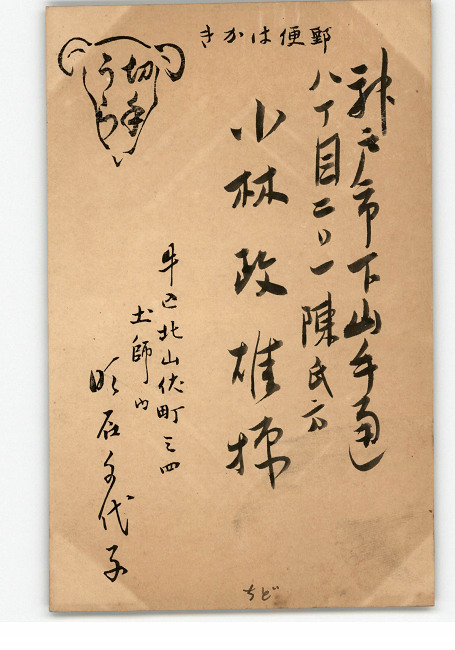 きかは便郵
切手
うら
神戸市下山手通
八丁目二ノ一陳氏方
小林政雄様
牛込北山伏町三四
土師内
明石千代子
ちど